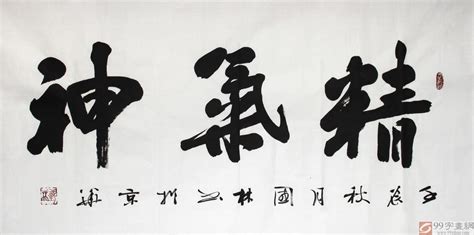 精氣神
壬辰秋月國林书於京華
99字畫網